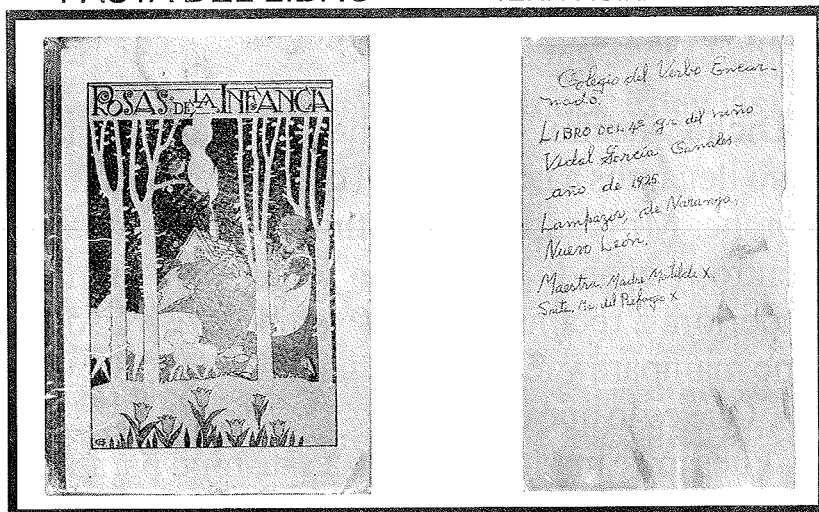 PASTA DEL LIBRO
ROSAS DE LA INFANCIA
Colegio del Verbo Encar-
nado.
LIBRO DEL 4º gr. del niño
Vidal García Canales
año de 1925
Lampazos, de Naranjo,
Nuevo León.
Maestra Madre Matilde X.
Srita. Ma. del Refugio X